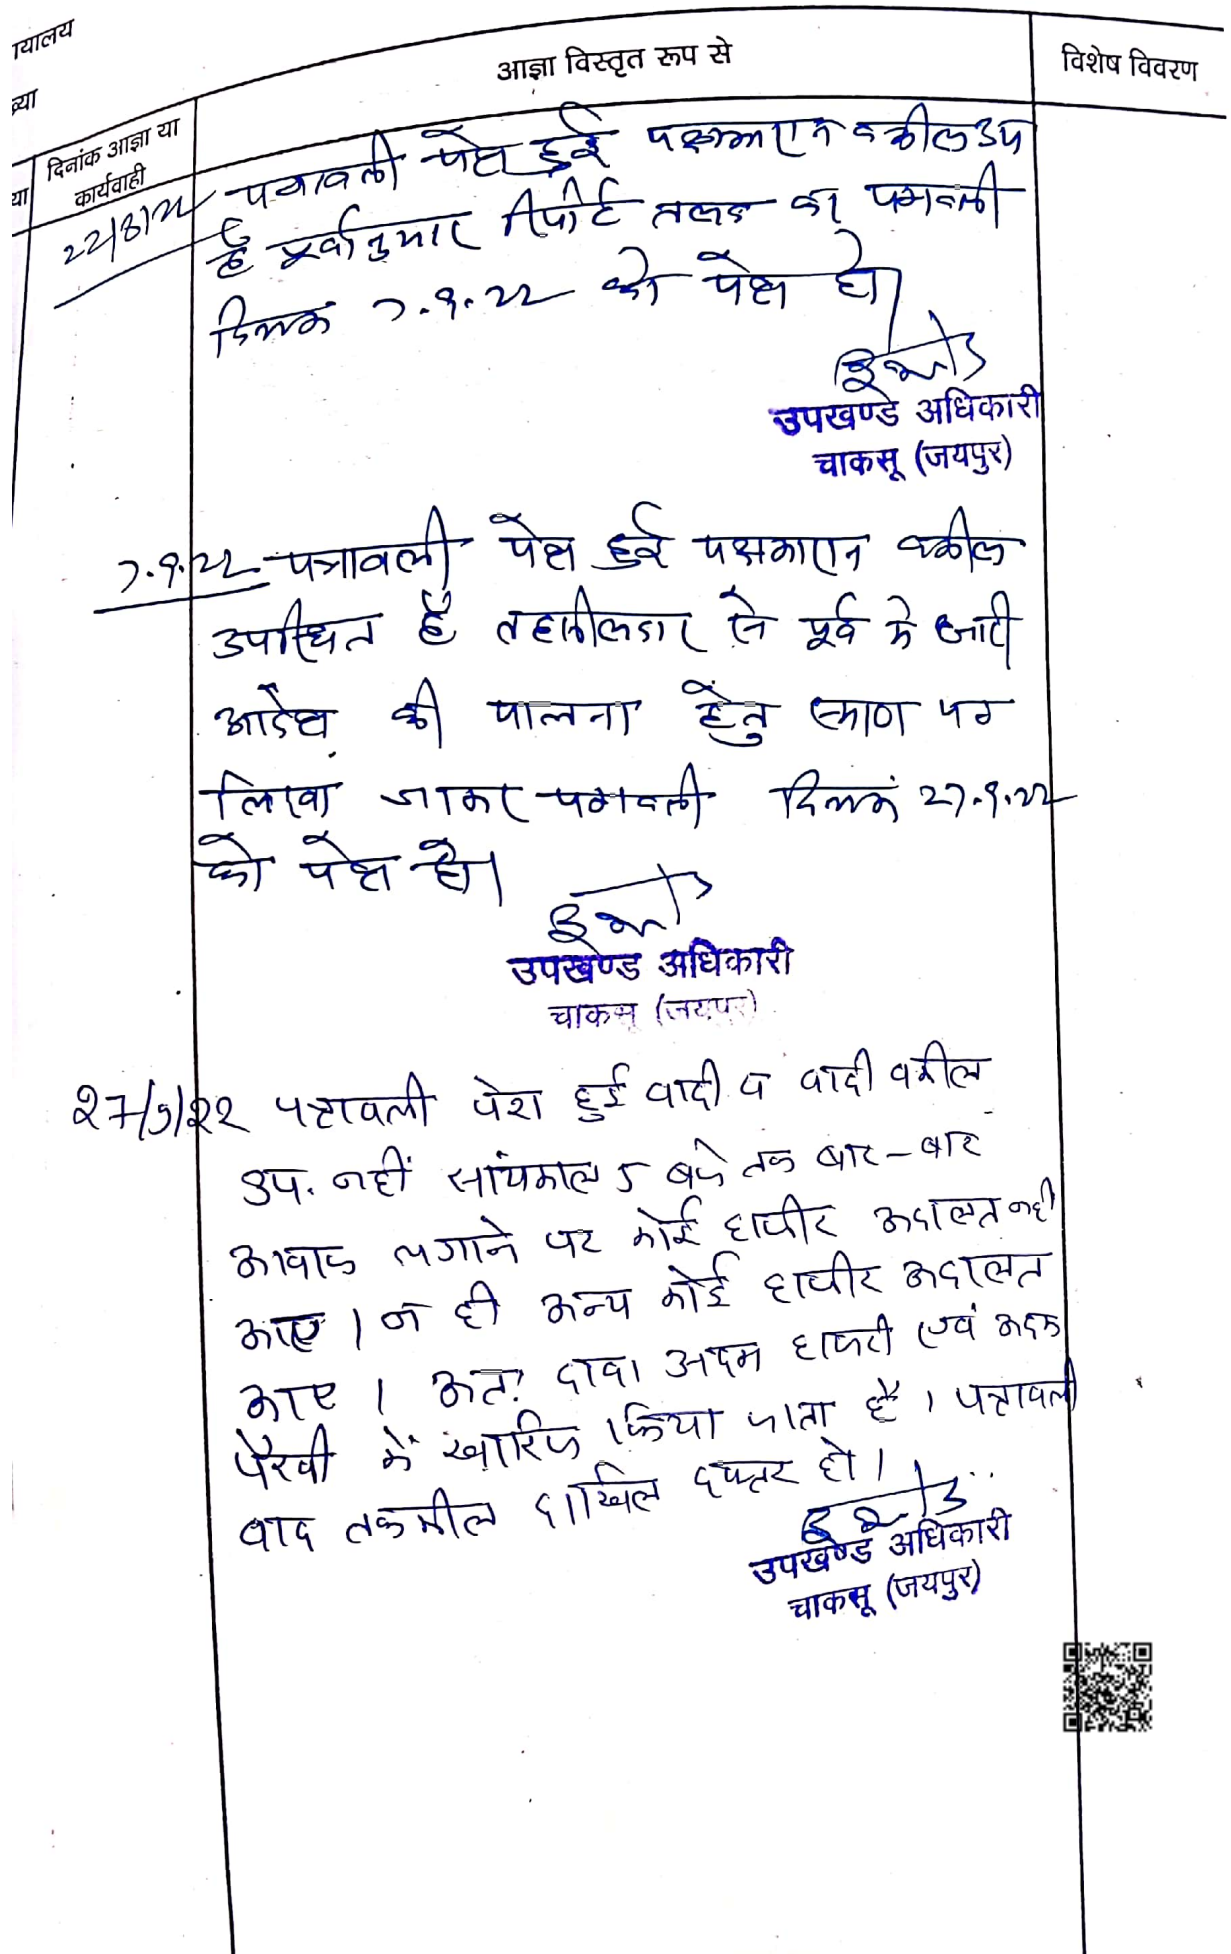 यालय
ख्या
या
दिनांक आज्ञा या
कार्यवाही
आज्ञा विस्तृत रूप से
विशेष विवरण
22/8/22 पत्रावली पेश हुई पक्षकारान वकील उप
है पूर्वानुसार रिपोर्ट तलब कर पत्रावली
दिनांक 7.9.22 को पेश हो।
उपखण्ड अधिकारी
चाकसू (जयपुर)
7.9.22 पत्रावली पेश हुई पक्षकारान वकील
उपस्थित है तहसीलदार से पूर्व मे जारी
आदेश की पालना हेतु स्मरण पत्र
लिखा जाकर पत्रावली दिनांक 27.9.22
को पेश हो।
उपखण्ड अधिकारी
चाकसू (जयपुर)
27/9/22 पत्रावली पेश हुई वादी व वादी वकील
उप. नहीं सांयकाल 5 बजे तक बार-बार
आवाज लगाने पर कोई हाजीर अदालत नही
आए । न ही अन्य कोई हाजीर अदालत
आए । अतः दावा अदम हाजरी एवं अदम
पैरवी में खारिज किया जाता है । पत्रावली
बाद तकमील दाखिल दफ्तर हो ।
उपखण्ड अधिकारी
चाकसू (जयपुर)